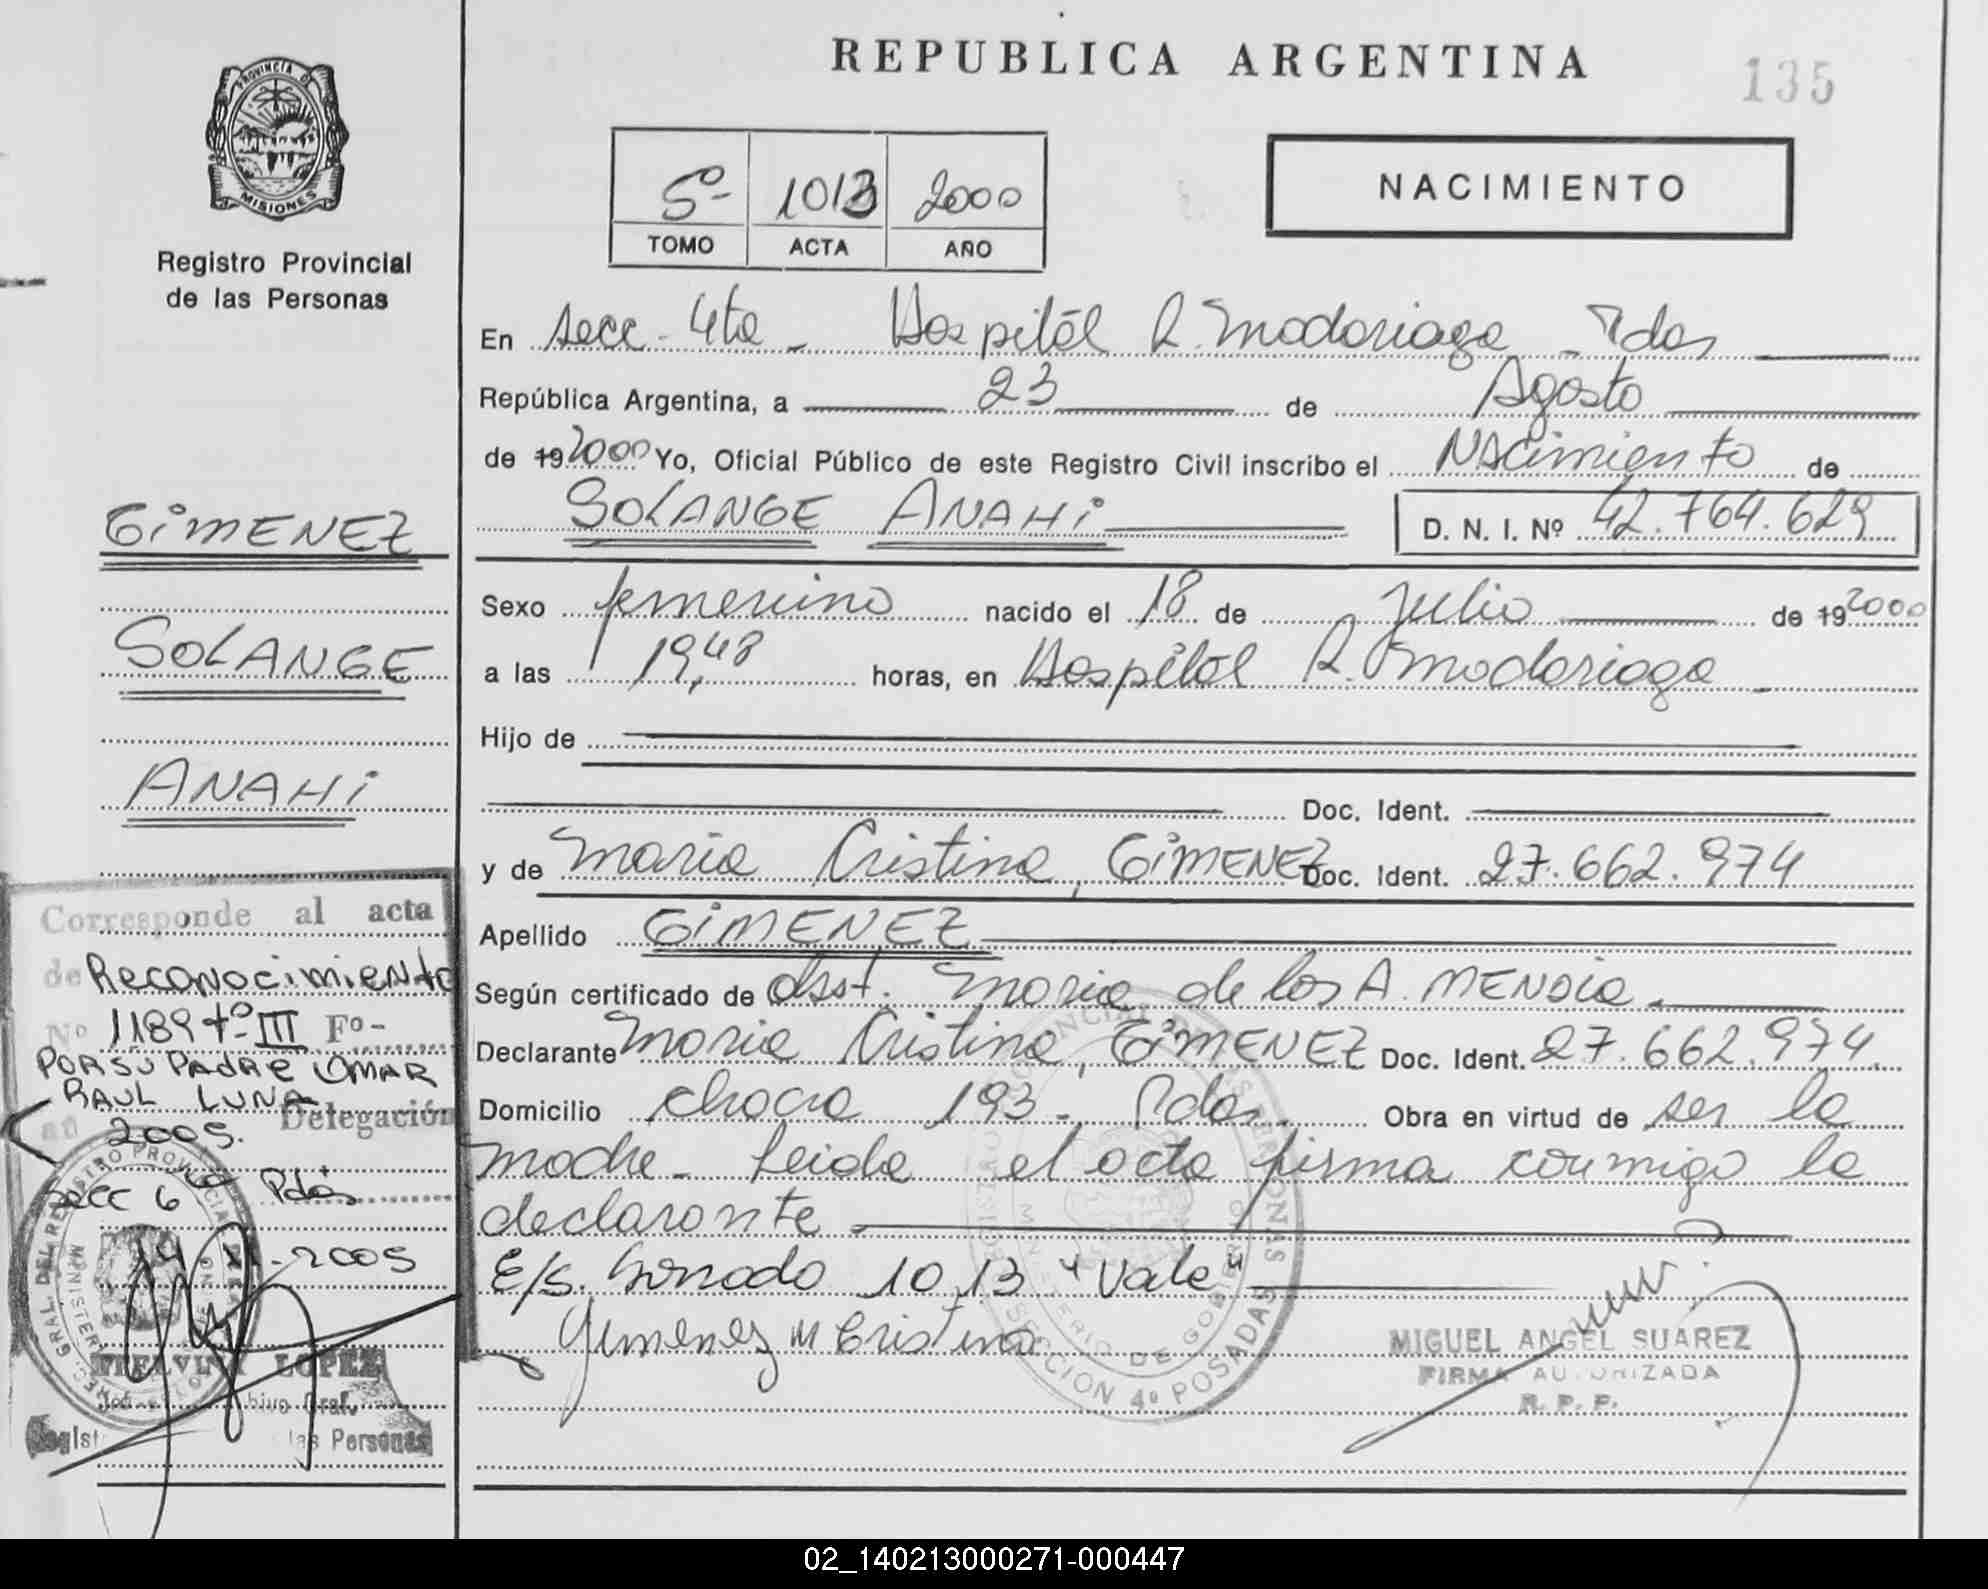 REPUBLICA ARGENTINA
135
PROVINCIA DE
MISIONES
Registro Provincial
de las Personas
5º- 1013 2000
TOMO ACTA AÑO
NACIMIENTO
En secc. 4ta - Hospital R. Madariaga - Pdas
República Argentina, a 23 de Agosto
de 19 2000 Yo, Oficial Público de este Registro Civil inscribo el Nacimiento de
SOLANGE ANAHI D. N. I. Nº 42.764.629
Sexo femenino nacido el 18 de Julio de 19 2000
a las 19,48 horas, en Hospital R. Madariaga
Hijo de
Doc. Ident.
y de Maria Cristina, GIMENEZ Doc. Ident. 27.662.974
Apellido GIMENEZ
Según certificado de obst. Maria de los A. MENDIA
Declarante Maria Cristina, GIMENEZ Doc. Ident. 27.662.974.
Domicilio chacra 193 - Pdas. Obra en virtud de ser la
madre - Leida el acta firma conmigo la
declarante
E/s. Borrado 1013 "Vale"
Gimenez M Cristina
MIGUEL ANGEL SUAREZ
FIRMA AUTORIZADA
R. P. P.
SECCION 4º POSADAS
MINISTERIO DE GOBIERNO
GIMENEZ
SOLANGE
ANAHI
Corresponde al acta
de Reconocimiento
Nº 1189 tº III Fº-
POR SU PADRE OMAR
RAUL LUNA
Delegación
año 2005.
secc 6ta Pdas
14 XI-2005
LOPEZ
las Personas
02_140213000271-000447